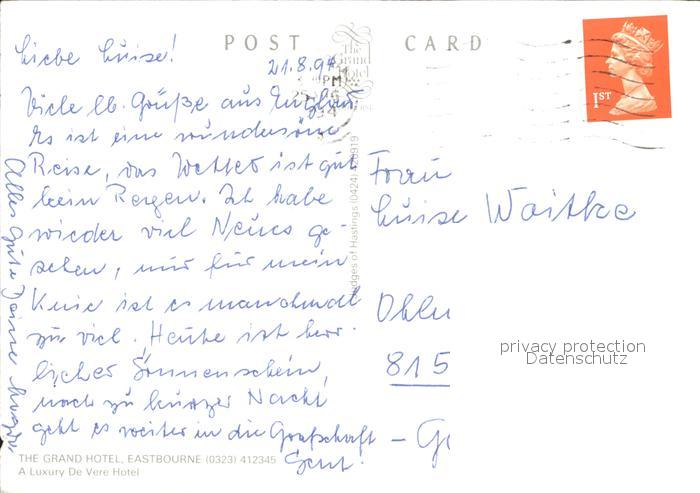 POST CARD
The Grand Hotel
1ST
Liebe Luise!
21.8.94
PM
Viele lb. Grüße aus England
Es ist eine wunderschöne
Reise, das Wetter ist gut
kein Regen. Ich habe
wieder viel Neues ge-
sehen, nur für mein
Knie ist es manchmal
zu viel. Heute ist herr-
licher Sonnenschein,
nach zu kurzer Nacht
geht es weiter in die Grafschaft
Gent.
Alles Gute Deine
Judges of Hastings (0424) 420919
Frau
Luise Waitke
815
privacy protection
Datenschutz
THE GRAND HOTEL, EASTBOURNE (0323) 412345
A Luxury De Vere Hotel